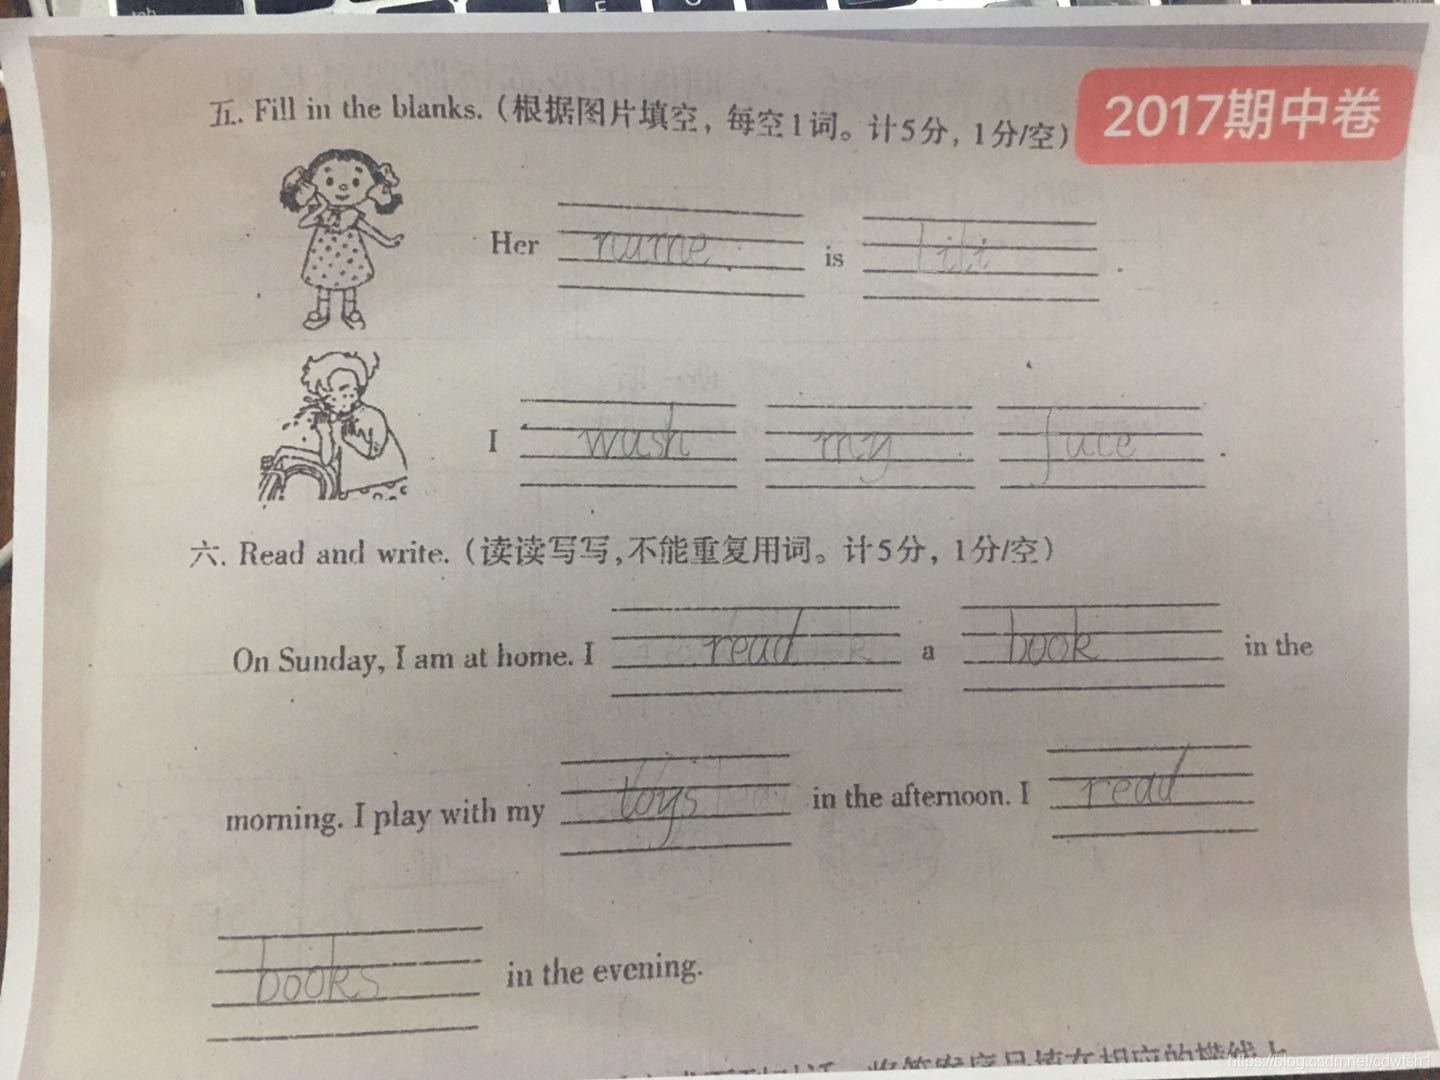 五. Fill in the blanks. (根据图片填空, 每空1词。计5分, 1分/空)
2017期中卷
Her name is Lili.
I wash my face.
六. Read and write. (读读写写,不能重复用词。计5分, 1分/空)
On Sunday, I am at home. I read a book in the
morning. I play with my toys in the afternoon. I read
books in the evening.
https://blog.csdn.net/cdwish1